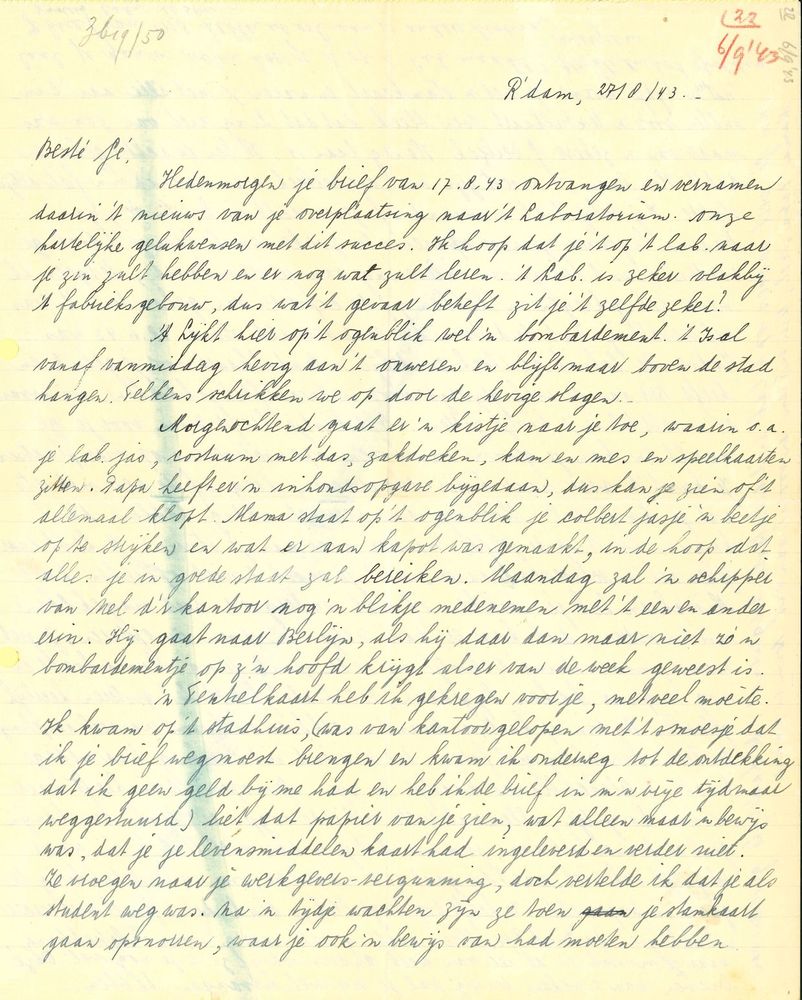 3619/50
22
6/9 '43
22
6/9 '43
R'dam, 27/8/43. -
Beste Gé,
Hedenmorgen je brief van 17.8.43 ontvangen en vernamen
daarin 't nieuws van je overplaatsing naar 't Laboratorium. Onze
hartelijke gelukwensen met dit succes. Ik hoop dat je 't op 't lab. naar
je zin zult hebben en er nog wat zult leren. 't Lab. is zeker vlakbij
't fabrieksgebouw, dus wat 't gevaar beheft zit je 't zelfde zeker!
't Lijkt hier op 't ogenblik wel 'n bombardement. 't Is al
vanaf vanmiddag hevig aan 't onweren en blijft maar boven de stad
hangen. Telkens schrikken we op door de hevige slagen. -
Morgenochtend gaat er 'n kistje naar je toe, waarin o.a.
je lab. jas, costuum met das, zakdoeken, kam en mes en speelkaarten
zitten. Papa heeft er 'n inhoudsopgave bijgedaan, dus kan je zien of 't
allemaal klopt. Mama staat op 't ogenblik je colbert jasje 'n beetje
op te strijken en wat er aan kapot was gemaakt, in de hoop dat
alles je in goede staat zal bereiken. Maandag zal 'n schipper
van Nel d'r kantoor nog 'n blikje medenemen met 't een en ander
erin. Hij gaat naar Berlijn, als hij daar dan maar niet zo'n
bombardementje op z'n hoofd krijgt als er van de week geweest is.
'n Textielkaart heb ik gekregen voor je, met veel moeite.
Ik kwam op 't stadhuis, (was van kantoor gelopen met 't smoesje dat
ik je brief weg moest brengen en kwam ik onderweg tot de ontdekking
dat ik geen geld bij me had en heb ik de brief in m'n vrije tijd maar
weggestuurd) liet dat papier van je zien, wat alleen maar 'n bewijs
was, dat je je levensmiddelen kaart had ingeleverd en verder niet.
Ze vroegen naar je werkgevers-vergunning, doch vertelde ik dat je als
student weg was. Na 'n tijdje wachten zijn ze toen gaan je stamkaart
gaan opsnorren, waar je ook 'n bewijs van had moeten hebben.